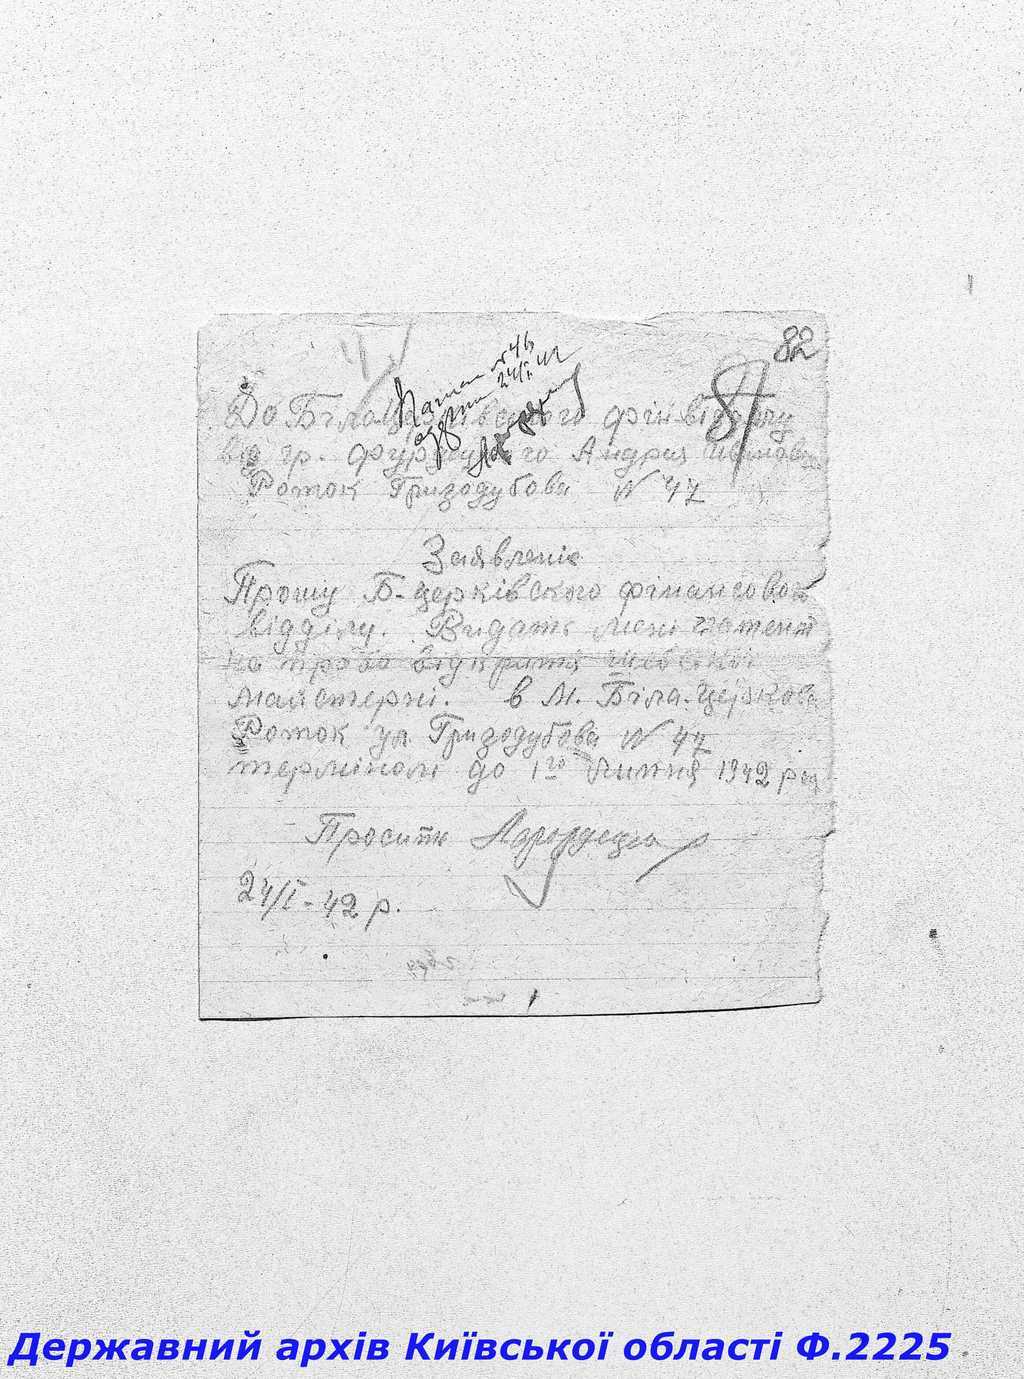 82
Патент № 46
24/I 42
До Білоцерківського фінвідділу
від гр. Андрія
Роток Гризодубова № 47
Заявленіє
Прошу Б-церківского фінансового
відділу. Видать мені патент
на право відкриття шевської
майстерні. в М. Біла-Церкова
Роток ул. Гризодубова № 47
терміном до 1го липня 1942 рок
Просить
24/I-42 р.
Державний архів Київської області Ф.2225